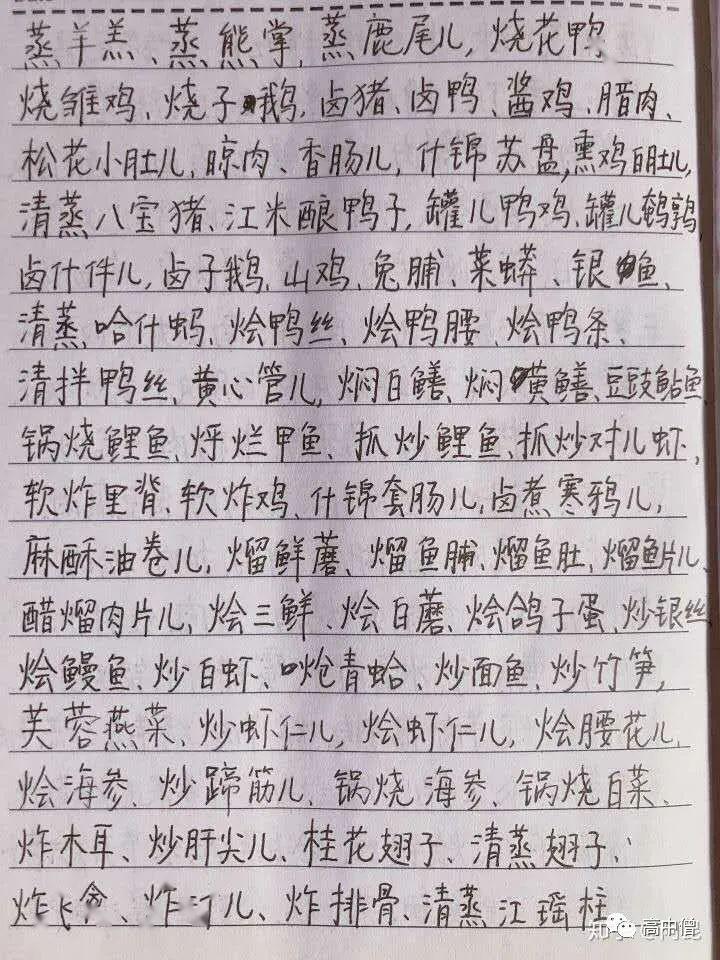 蒸羊羔、蒸熊掌,蒸鹿尾儿,烧花鸭
烧雏鸡、烧子鹅,卤猪、卤鸭、酱鸡、腊肉、
松花小肚儿,晾肉、香肠儿,什锦苏盘,熏鸡白肚儿,
清蒸八宝猪、江米酿鸭子,罐儿鸭鸡、罐儿鹌鹑
卤什件儿,卤子鹅,山鸡、兔脯、菜蟒、银鱼、
清蒸哈什蚂、烩鸭丝、烩鸭腰、烩鸭条、
清拌鸭丝、黄心管儿,焖白鳝、焖黄鳝、豆豉鲇鱼
锅烧鲤鱼、烀烂甲鱼、抓炒鲤鱼、抓炒对儿虾,
软炸里背、软炸鸡、什锦套肠儿,卤煮寒鸦儿,
麻酥油卷儿,熘鲜蘑、熘鱼脯、熘鱼肚、熘鱼片儿、
醋熘肉片儿,烩三鲜、烩白蘑、烩鸽子蛋、炒银丝
烩鳗鱼、炒白虾、炝青蛤、炒面鱼、炒竹笋,
芙蓉燕菜、炒虾仁儿,烩虾仁儿,烩腰花儿,
烩海参、炒蹄筋儿、锅烧海参、锅烧白菜、
炸木耳、炒肝尖儿、桂花翅子、清蒸翅子、
炸、炸儿、炸排骨、清蒸江瑶柱
高中僼